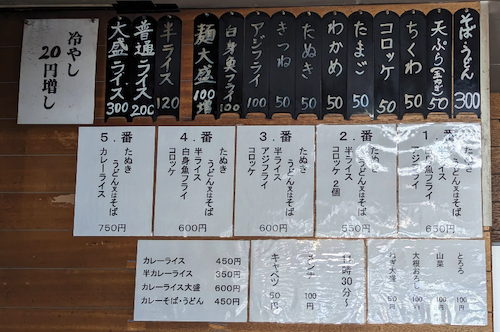 そば・うどん 300
天ぷら 50
ちくわ 50
コロッケ 50
たまご 50
わかめ 50
たぬき 50
きつね 50
アジフライ 100
白身魚フライ
麺大盛 100増
半ライス 120
普通ライス 200
大盛ライス 300
冷やし
20円増し
1.番
たぬき
うどん又はそば
白身魚フライ
アジフライ
2.番
たぬき
うどん又はそば
半ライス
コロッケ 2個
550円
3.番
たぬき
うどん又はそば
半ライス
アジフライ
600円
4.番
たぬき
うどん又はそば
半ライス
白身魚フライ
コロッケ
600円
5.番
たぬき
うどん又はそば
カレーライス
750円
とろろ
山菜 100円
大根おろし 100円
ねぎ大盛 50円
時30分〜
100円
キャベツ 50円
カレーライス 450円
半カレーライス 350円
カレーライス大盛 600円
カレーそば・うどん 450円